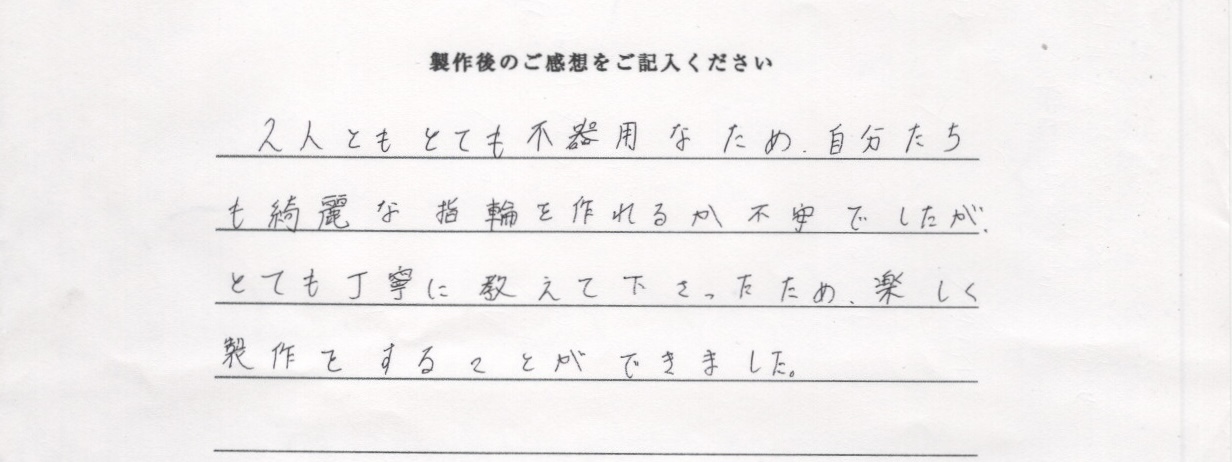 製作後のご感想をご記入ください
2人ともとても不器用なため、自分たち
も綺麗な指輪を作れるか不安でしたが、
とても丁寧に教えて下さったため、楽しく
製作をすることができました。